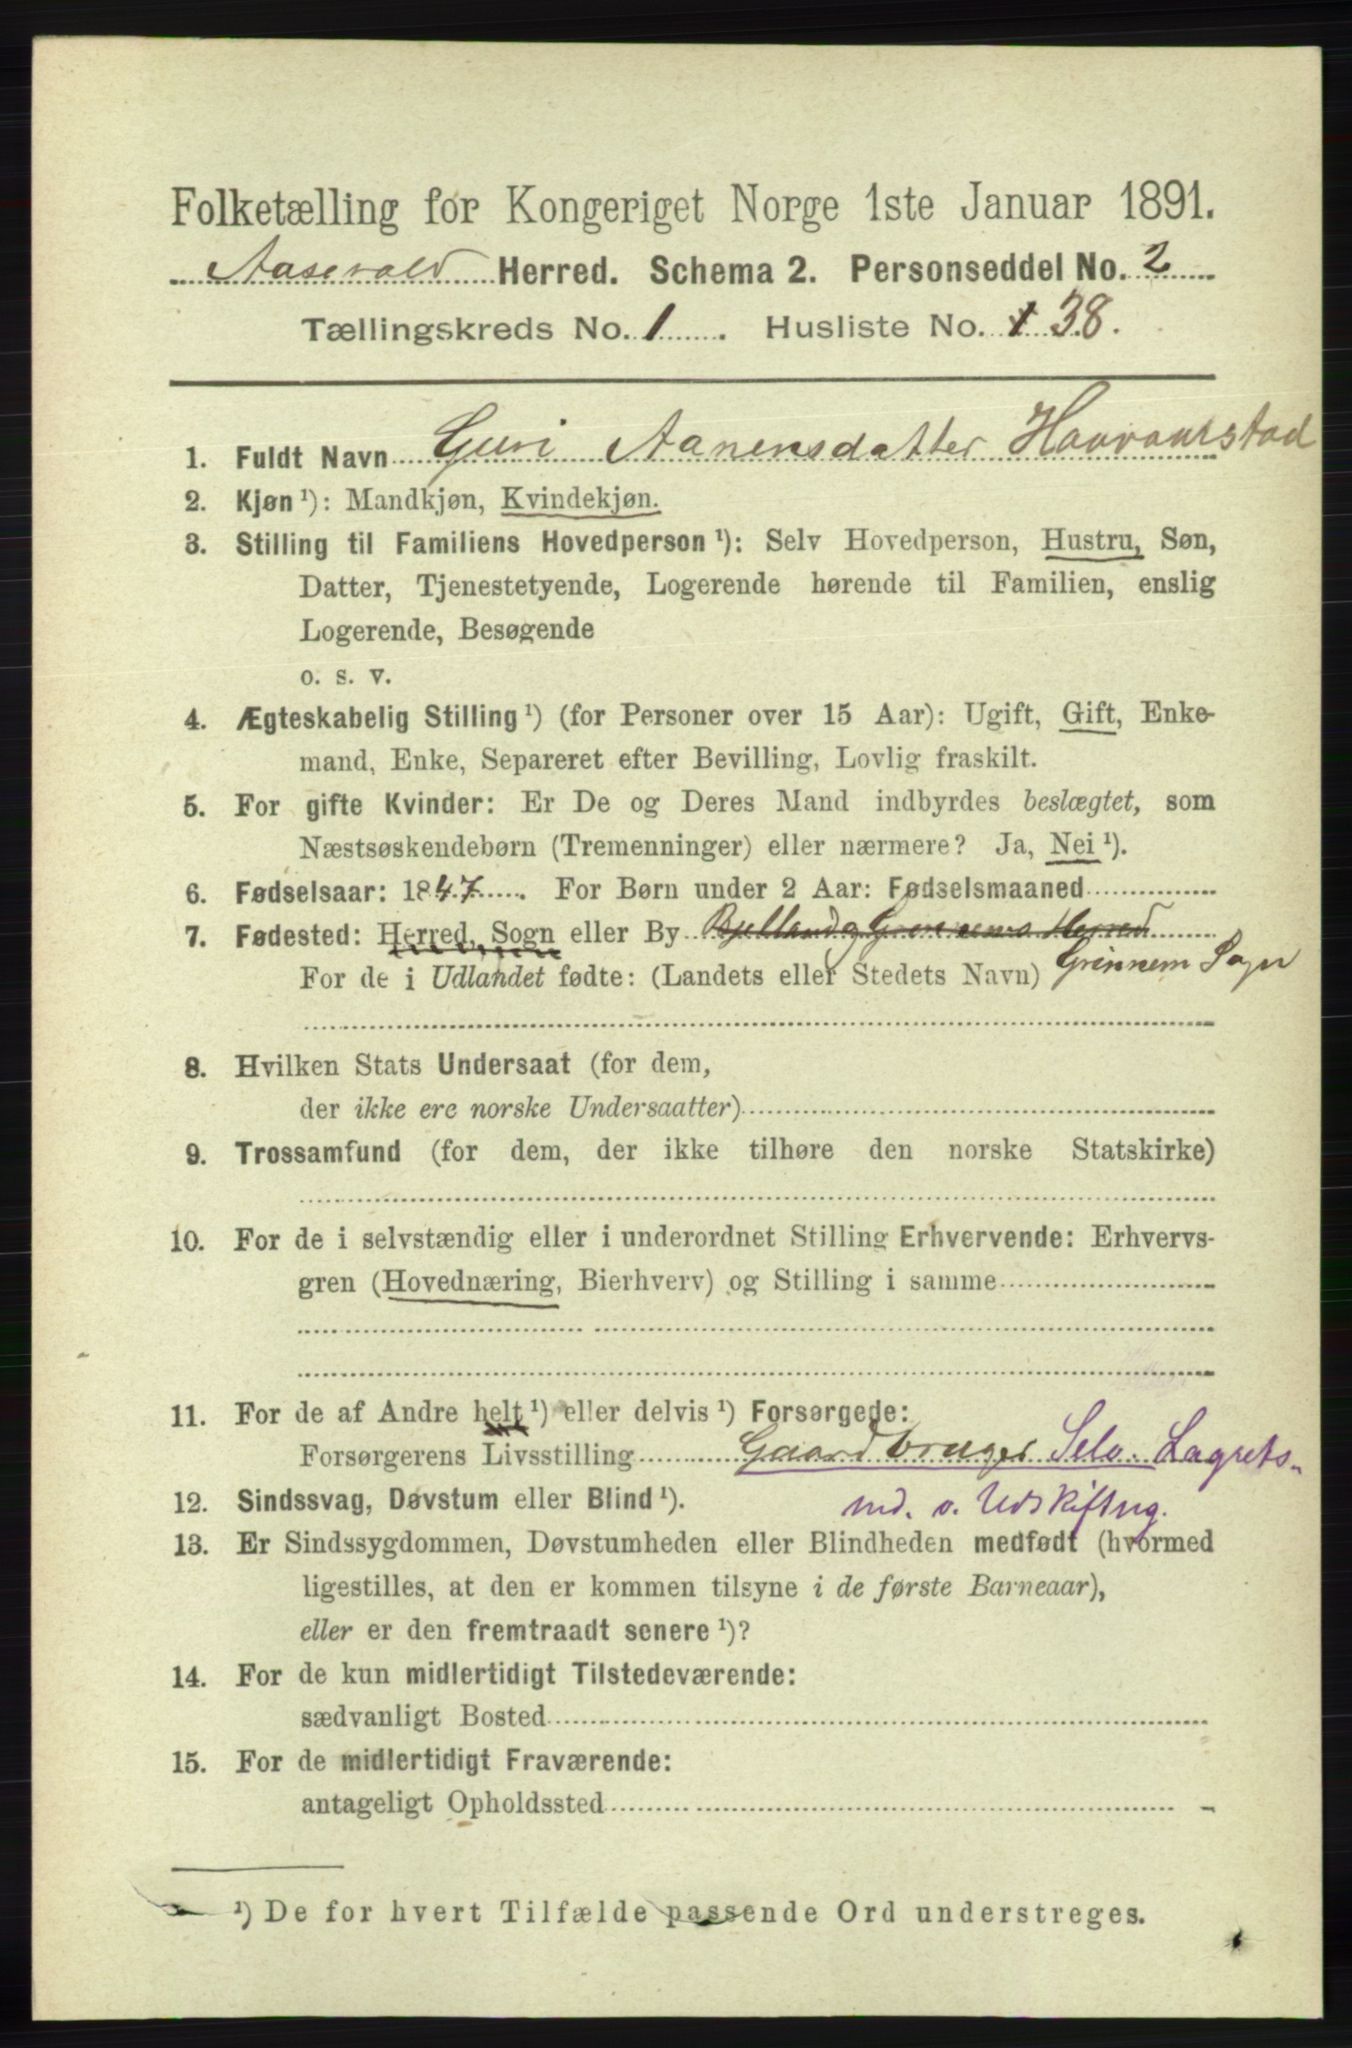 Folketælling for Kongeriget Norge 1ste Januar 1891.
Aaserald Herred. Schema 2. Personseddel No. 2
Tællingskreds No. 1. Husliste No. 1 38.
1. Fuldt Navn Guri Aanensdatter Haavaarstad
2. Kjøn ¹): Mandkjøn, Kvindekjøn.
3. Stilling til Familiens Hovedperson ¹): Selv Hovedperson, Hustru, Søn,
Datter, Tjenestetyende, Logerende hørende til Familien, enslig
Logerende, Besøgende
o. s. v.
4. Ægteskabelig Stilling ¹) (for Personer over 15 Aar): Ugift, Gift, Enke-
mand, Enke, Separeret efter Bevilling, Lovlig fraskilt.
5. For gifte Kvinder: Er De og Deres Mand indbyrdes beslægtet, som
Næstsøskendebørn (Tremenninger) eller nærmere? Ja, Nei ¹).
6. Fødselsaar: 1847. For Børn under 2 Aar: Fødselsmaaned
7. Fødested: Herred, Sogn eller By Bjelland og Herred
For de i Udlandet fødte: (Landets eller Stedets Navn) Grinnem Sogn
8. Hvilken Stats Undersaat (for dem,
der ikke ere norske Undersaatter)
9. Trossamfund (for dem, der ikke tilhøre den norske Statskirke)
10. For de i selvstændig eller i underordnet Stilling Erhvervende: Erhvervs-
gren (Hovednæring, Bierhverv) og Stilling i samme
11. For de af Andre helt ¹) eller delvis ¹) Forsørgede:
Forsørgerens Livsstilling Gaardbruger Selv. Lagrets-
md. v. Udskiftng.
12. Sindssvag, Døvstum eller Blind ¹).
13. Er Sindssygdommen, Døvstumheden eller Blindheden medfødt (hvormed
ligestilles, at den er kommen tilsyne i de første Barneaar),
eller er den fremtraadt senere ¹)?
14. For de kun midlertidigt Tilstedeværende:
sædvanligt Bosted
15. For de midlertidigt Fraværende:
antageligt Opholdssted
¹) De for hvert Tilfælde passende Ord understreges.